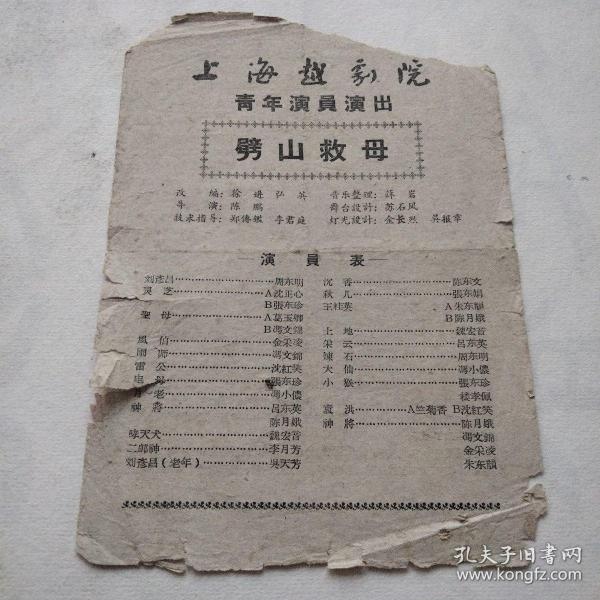 上海越劇院
青年演員演出
劈山救母
改 編：徐進 弘英 音乐整理：薛岩
导 演：陈鹏 舞台設計：苏石风
技术指导：郑傳鑑 李君庭 灯光設計：金长烈 吳报章
演員表
刘彥昌……周东明
灵芝……A沈正心
B張东珍
聖母……A葛玉卿
B馮文錦
風伯……金采凌
雨师……馮文錦
雷公……沈紅笑
电母……張东珍
月老……馮小儂
神將……呂东英
陈月娥
哮天犬……魏宏音
二郎神……李月芳
刘彥昌（老年）……吳天芳
沉香……陈东文
秋儿……張东娟
王桂英 A朱东韻
B陈月娥
土地……魏宏音
朵云……呂东英
煉石……周东明
大仙……馮小儂
小猴……張东珍
楼孝佩
袁洪……A竺菊香 B沈紅笑
神將……陈月娥
馮文錦
金采凌
朱东韻
孔夫子旧書网
www.kongfz.com